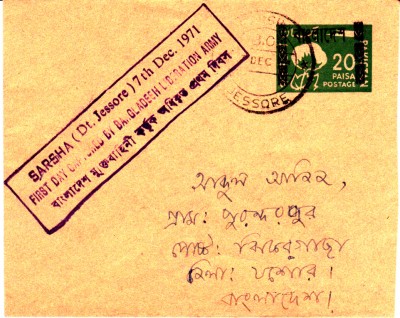 SARSHA (Dt. Jessore) 7th Dec. 1971
FIRST DAY CAPTURED BY BANGLADESH LIBERATION ARMY
বাংলাদেশ মুক্তবাহিনী কর্তৃক অধিকৃত প্রথম দিবস
DEC
JESSORE
বাংলাদেশ
20
PAISA
POSTAGE
PAKISTAN
আব্দুল
গ্রাম: পুরন্দরপুর
পোষ্ট: ঝিকরগাছা
জিলা: যশোর।
বাংলাদেশ।